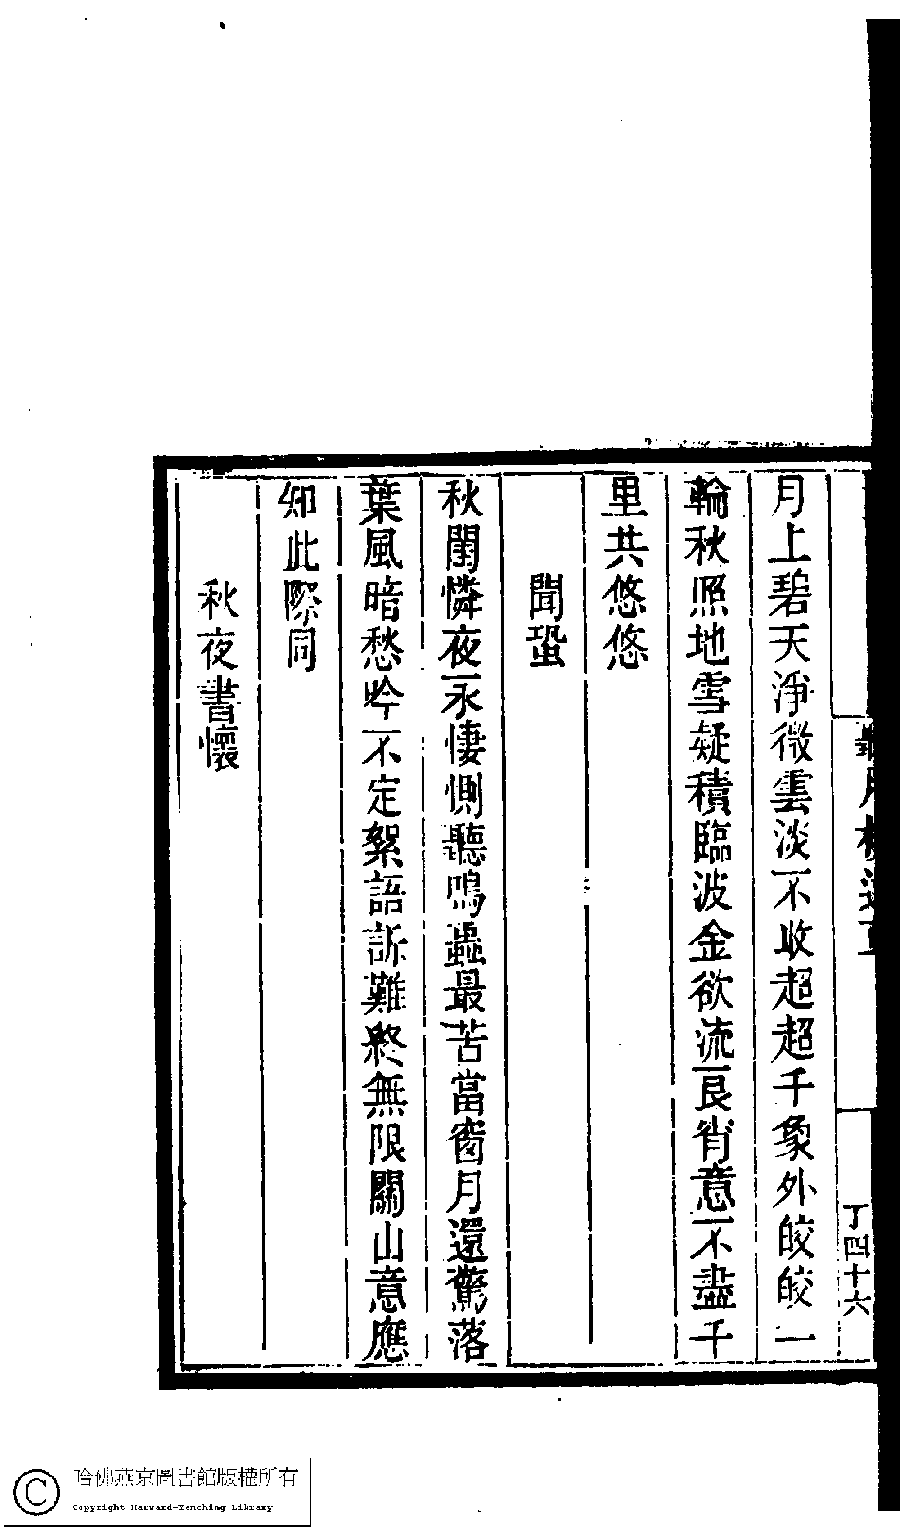 丁四十六
月上碧天淨微雲淡不收超超千象外皎皎一
輪秋照地雪疑積臨波金欲流良宵意不盡千
里共悠悠
聞蛩
秋閨憐夜永悽惻聽鳴蟲最苦當窗月還驚落
葉風暗愁吟不定絮語訴難終無限關山意應
知此際同
秋夜書懷
哈佛燕京圖書館版權所有
Copyright Harvard-Yenching Library